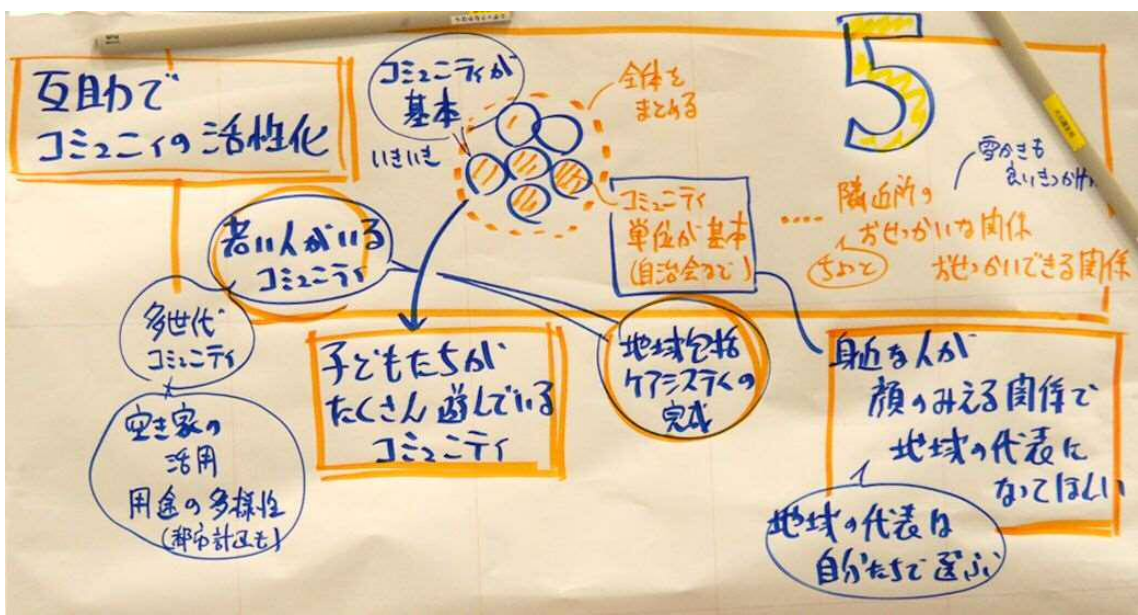 互助で
コミュニィの活性化
コミュニティが
基本
いきいき
全体を
まとめる
5
雪かきも
良いきっかけ
コミュニティ
単位が基本
(自治会など)
隣近所の
おせっかいな関係
ちょっと
おせっかいできる関係
若い人がいる
コミュニティ
多世代
コミュニティ
空き家の
活用
用途の多様性
(都市計画も)
子どもたちが
たくさん遊んでいる
コミュニティ
地域包括
ケアシステムの
完成
身近な人が
顔のみえる関係で
地域の代表に
なってほしい
地域の代表は
自分たちで選ぶ